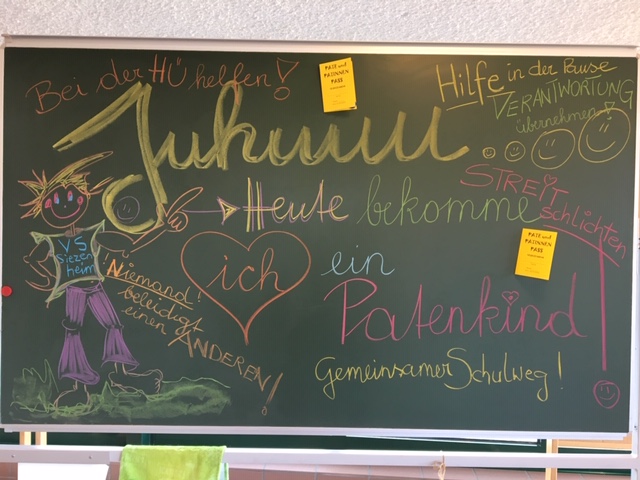 Bei der HÜ helfen!
PATE und
PATINNEN
PASS
Hilfe in der Pause
VERANTWORTUNG
übernehmen!
Juhuuu
STREIT
schlichten
Heute bekomme
ich ein
Patenkind!
PATE und
PATINNEN
PASS
VS
Siezen
heim
! Niemand!
beleidigt
einen
ANDEREN!
Gemeinsamer Schulweg!